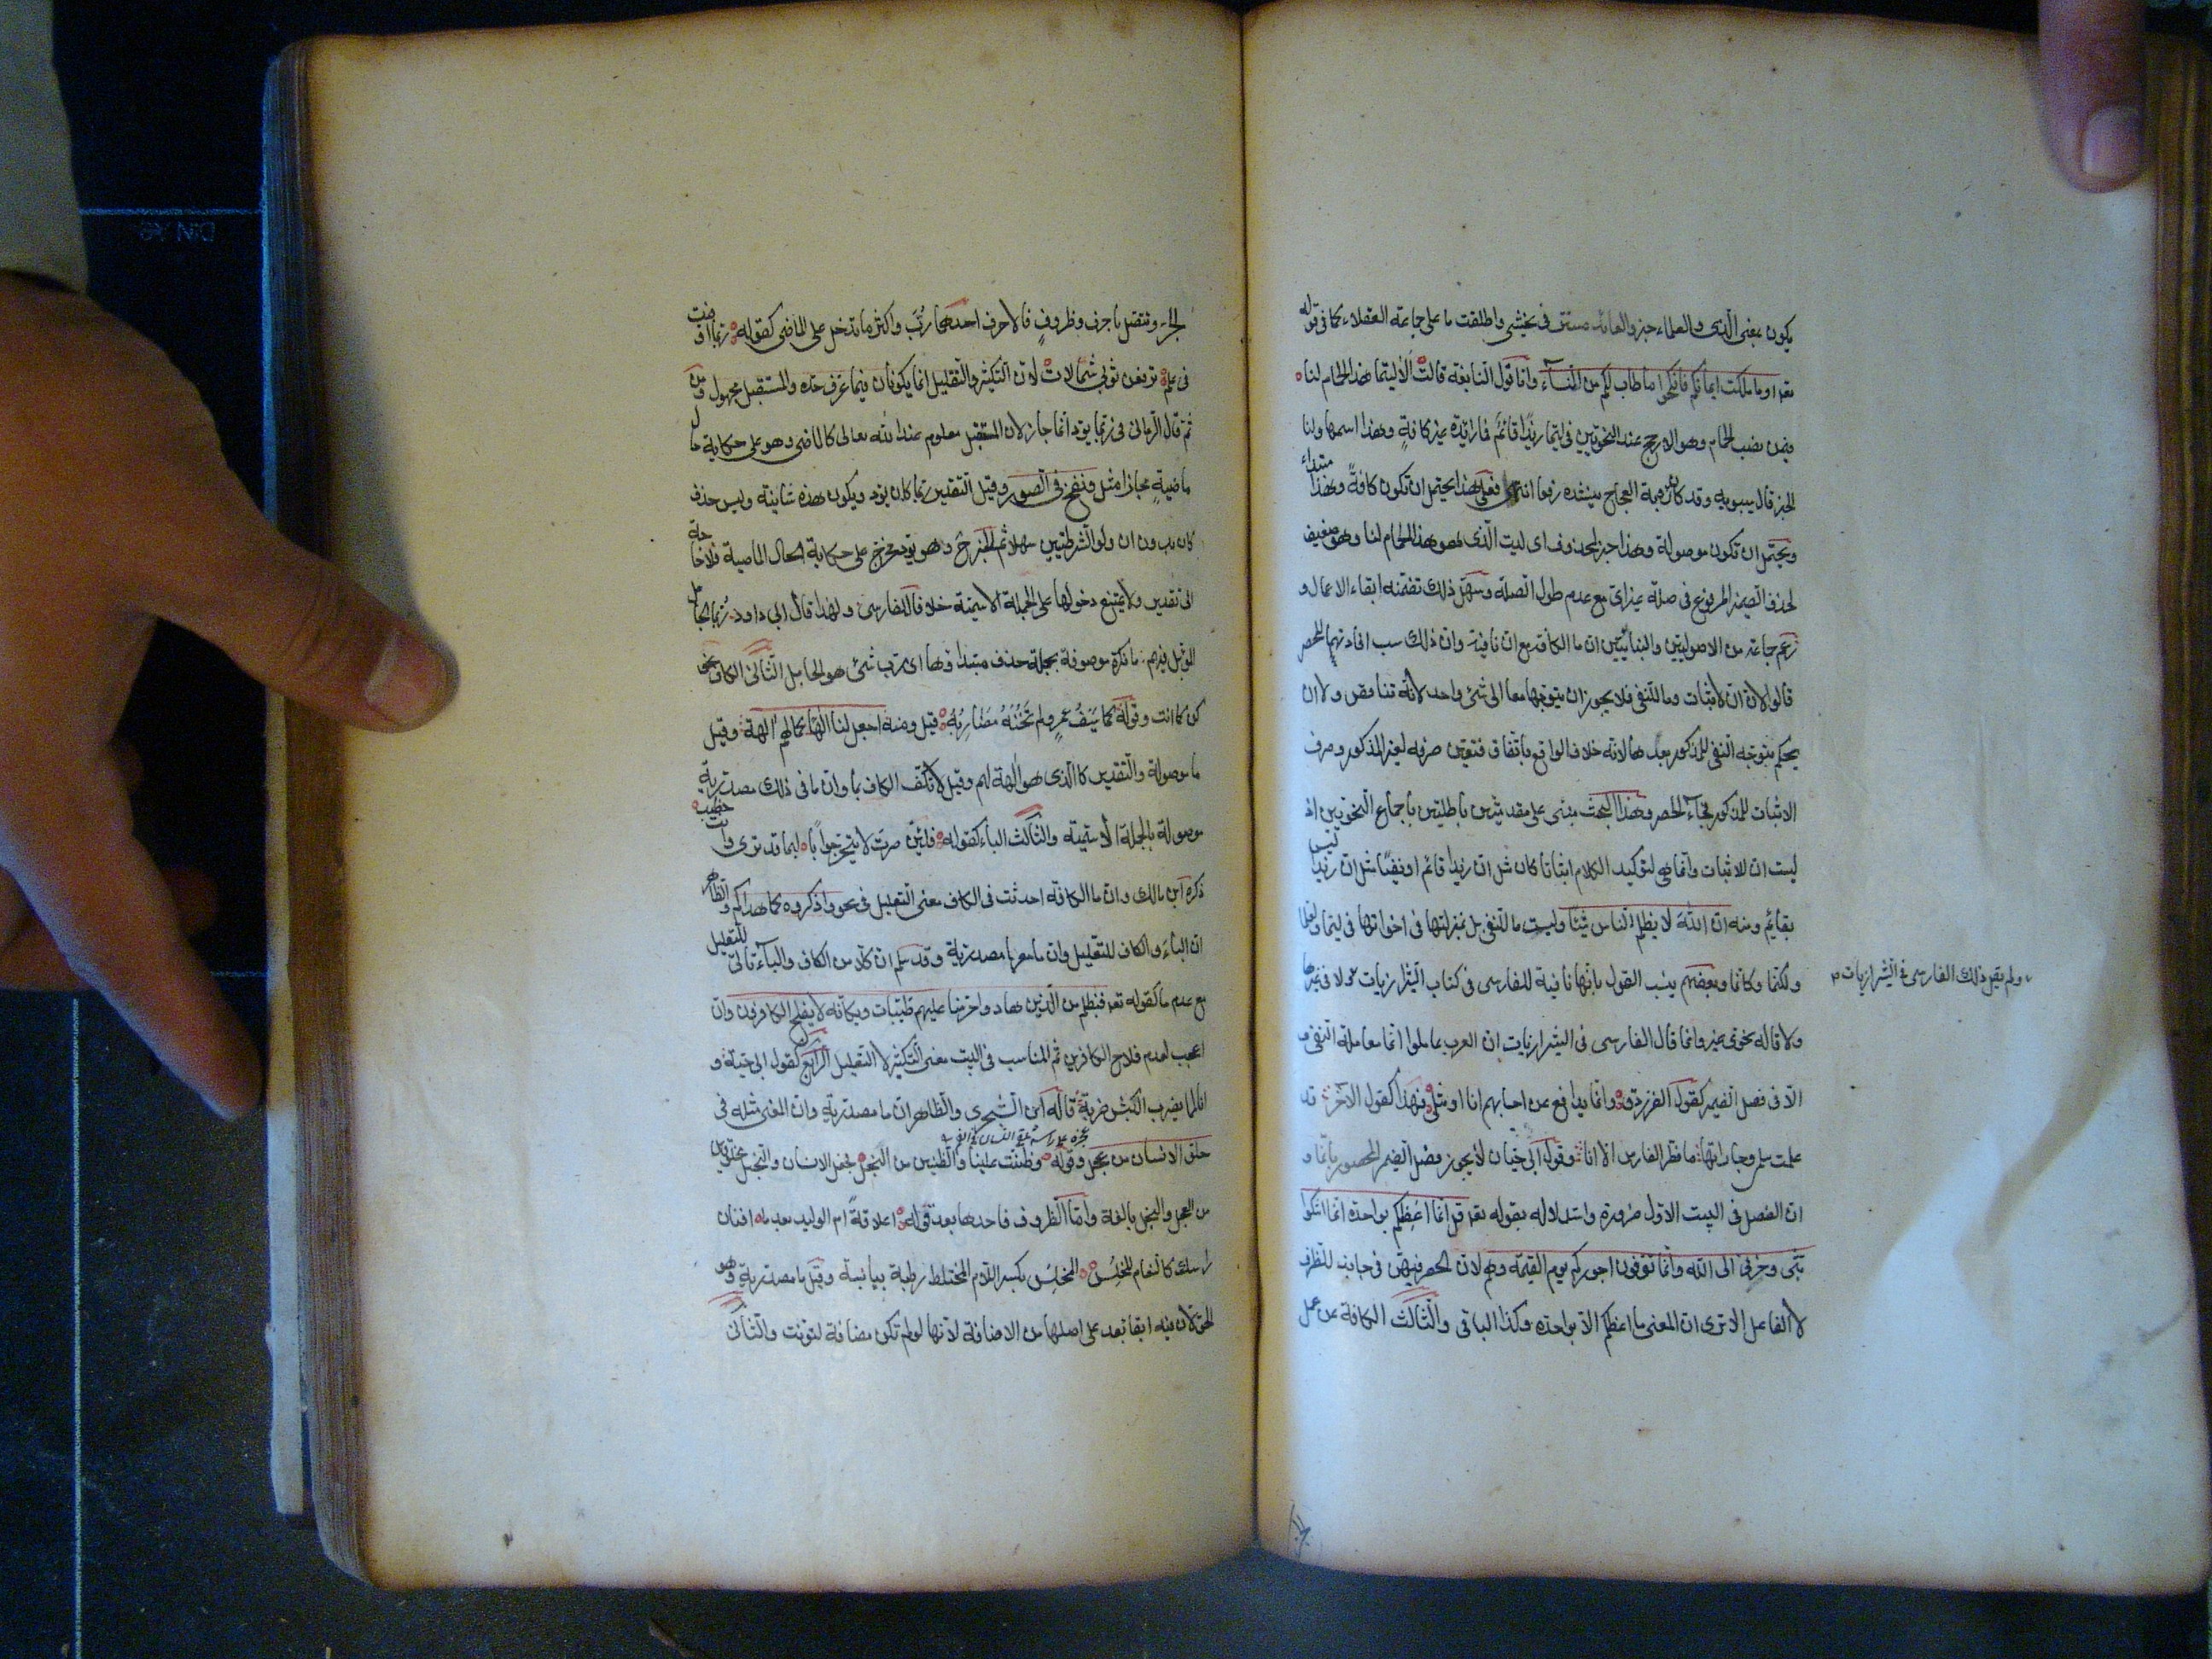 يكون بمعنى الذى والعلماء خبر والعائد مستتر فى يخشى واطلقت ما على جماعة العقلاء كما فى قوله
تعه او ما ملكت ايمانكم فانكحوا ما طاب لكم من النسآء واما قول النابغة قالت الا ليتما هذا الحمام لنا
فيمن نصب الحمام وهو الارجح عند النحويين فى ليتما زيدا قائم فما زائدة غير كافة وهذا اسمها ولنا
الخبر قال سيبويه وقد كان رؤبة بن العجاج ينشده رفعا انتهى فعلى هذا يحتمل ان تكون كافة وهذا مبتداء
ويحتمل ان تكون موصولة وهذا خبر لمحذوف اى ليت الذى هو هذا الحمام لنا وهو ضعيف
لحذف الضمير المرفوع فى صلة غير اى مع عدم طول الصلة وسهل ذلك تضمنه ابقاء الاعمال و
زعم جماعة من الاصوليين والبيانيين ان ما الكافة مع ان نافية وان ذلك سبب افادتهما للحصر
قالوا لان ان للاثبات وما للنفى فلا يجوز ان يتوجها معا الى شئ واحد لانه تناقض ولا ان
يحكم بتوجه النفى للمذكور بعدها لانه خلاف الواقع باتفاق فتعين صرفه لغير المذكور وصرف
الاثبات للمذكور فجآء الحصر وهذا البحث مبنى على مقدمتين باطلتين باجماع النحويين اذ
ليست ان للاثبات وانما هى لتوكيد الكلام اثباتا كان مثل ان زيدا قائم او نفيا مثل ان زيدا ليس
بقايم ومنه ان الله لا يظلم الناس شيئا وليست ما للنفى بل بمنزلتها فى اخواتها فى ليتما ولعلما
ولكنما وكانما وبعضهم ينسب القول بانها نافية للفارسى فى كتاب الشيرازيات ولا فى غيرها
ولم يقل ذلك الفارسى فى الشيرازيات
ولا قاله نحوى غيره وانما قال الفارسى فى الشيرازيات ان العرب عاملوا انما معاملة النفى و
الا فى فصل الضمير كقول الفرزدق وانما يدافع عن احسابهم انا او مثلى فهذا كقول الآخر قد
علمت سلمى وجاراتها ما قطر الفارس الا انا وقول ابى حيان لا يجوز فصل الضمير المحصور بانما و
ان الفصل فى البيت الاول ضرورة واستدلاله بقوله تعه قل انما اعظكم بواحدة انما اشكوا
بثى وحزنى الى الله وانما توفون اجوركم يوم القيمة وهم لان الحصر فيهن فى جانب الظرف
لا الفاعل الا ترى ان المعنى ما اعظكم الا بواحدة وكذا الباقى والثالث الكافة عن عمل
الجر وتتصل باحرف وظروف فالاحرف احدها رب واكثر ما تدخل على الماضى كقوله ربما اوفيت
فى علم ترفعن ثوبى شمالات لان التكثير والتقليل انما يكونان فيما عرف حده والمستقبل مجهول ومن
ثم قال الرمانى فى ربما يود انما جاز لان المستقبل معلوم عند الله تعالى كالماضى وهو على حكاية حال
ماضية مجازا مثل ونفخ فى الصور وقيل التقدير ربما كان يود ويكون هذه شانية وليس حذف
كان بدون ان ولو الشرطيتين سهلا ثم الخبر ح وهو يود مخرج على حكاية الحال الماضية فلا حاجة
الى تقدير ولا يمتنع دخولها على الجملة الاسمية خلافا للفارسى ولهذا قال ابى داود ربما الجامل
المؤبل فيهم ما نكرة موصوفة بجملة حذف مبتداؤها اى رب شئ هو الجامل الثانى الكاف نحو
كن كما انت وقوله كما سيف عمرو لم تخنه مضاربه قيل ومنه اجعل لنا الها كما لهم الهة وقيل
ما موصولة والتقدير كالذى هو آلهة لهم وقيل لا تكف الكاف بما وان ما فى ذلك مصدرية
موصولة بالجملة الاسمية والثالث الباء كقوله فلئن صرت لا تحير جوابا لبما قد ترى وانت خطيب
ذكره ابن مالك وان ما الكافة احدثت فى الكاف معنى التعليل فى نحو واذكروه كما هداكم والظاهر
ان الباء والكاف للتعليل وان ما معهما مصدرية وقد سلم ان كلا من الكاف والبآء تاتى للتعليل
مع عدم ما كقوله تعه فبظلم من الذين هادوا حرمنا عليهم طيبات ويكانه لا يفلح الكافرون وان
اعجب لعدم فلاح الكافرين ثم المناسب فى البيت معنى التكثير لا التقليل الرابع من كقول ابى حية و
انا لما يضرب الكبش ضربة قاله ابن الشجرى والظاهر ان ما مصدرية وان المعنى مثله فى
خلق الانسان من عجل وقوله وضنت علينا والضنين من البخل فجعل الانسان والبخيل مخلوقين
من العجل والبخل مبالغة واما الظروف فاحدها بعد قوله اعلاقة ام الوليد بعد ما افنان
راسك كالثغام المخلس المخلس بكسر اللام المختلط رطبه بيابسه وقيل ما مصدرية وهو
الحق لان فيه ابقا بعد على اصلها من الاضافة لانها لو لم تكن مضافة لنونت والثانى